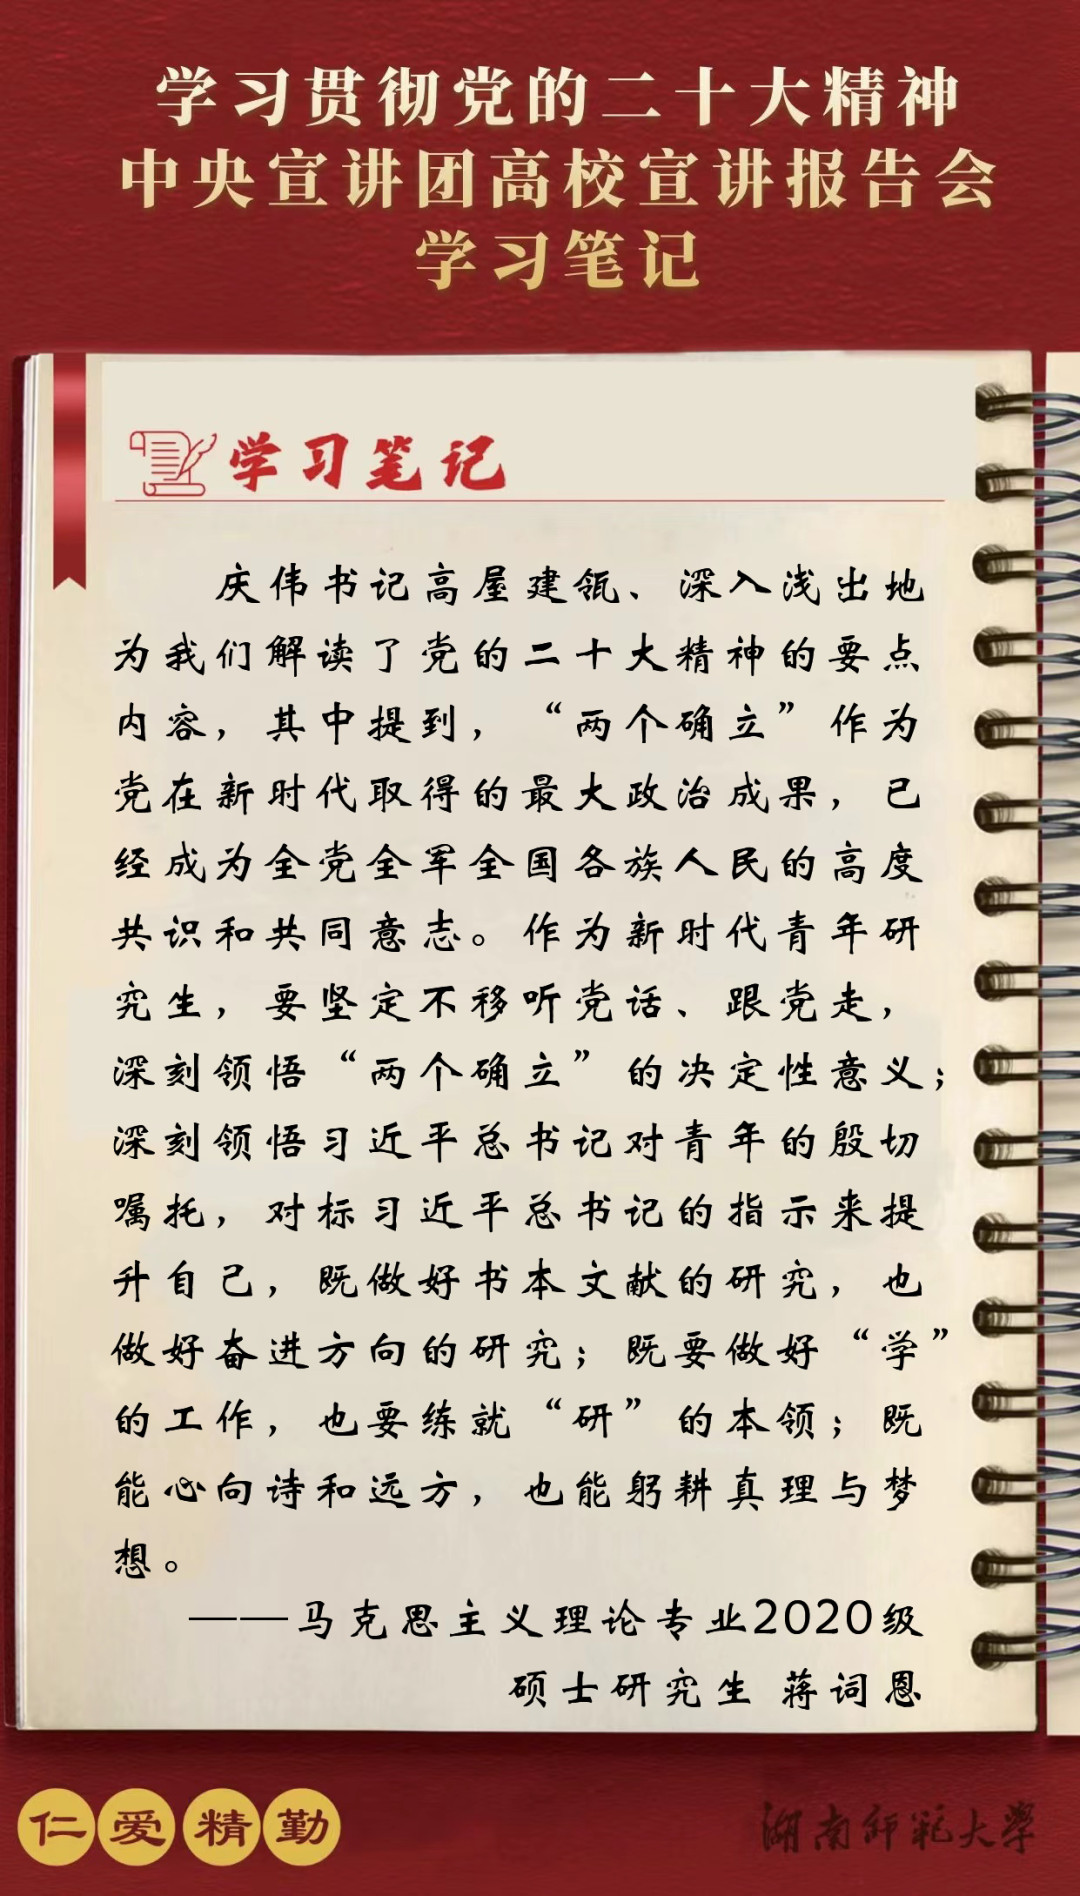 学习贯彻党的二十大精神
中央宣讲团高校宣讲报告会
学习笔记
学习笔记
庆伟书记高屋建瓴、深入浅出地
为我们解读了党的二十大精神的要点
内容，其中提到，“两个确立”作为
党在新时代取得的最大政治成果，已
经成为全党全军全国各族人民的高度
共识和共同意志。作为新时代青年研
究生，要坚定不移听党话、跟党走，
深刻领悟“两个确立”的决定性意义；
深刻领悟习近平总书记对青年的殷切
嘱托，对标习近平总书记的指示来提
升自己，既做好书本文献的研究，也
做好奋进方向的研究；既要做好“学”
的工作，也要练就“研”的本领；既
能心向诗和远方，也能躬耕真理与梦
想。
——马克思主义理论专业2020级
硕士研究生 蒋词恩
仁爱精勤
湖南师范大学